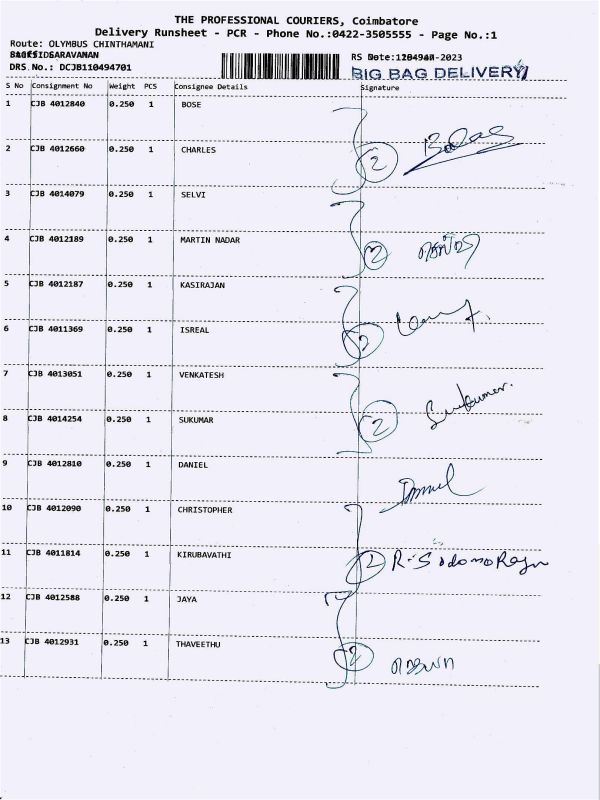 THE PROFESSIONAL COURIERS, Coimbatore
Delivery Runsheet - PCR - Phone No.:0422-3505555 - Page No.:1
Route: OLYMBUS CHINTHAMANI
SARAVANAN RS Date: -2023
DRS No.: DCJB110494701 BIG BAG DELIVERY
S No Consignment No Weight PCS Consignee Details Signature
1 CJB 4012840 0.250 1 BOSE
2 CJB 4012660 0.250 1 CHARLES 2
3 CJB 4014079 0.250 1 SELVI
4 CJB 4012189 0.250 1 MARTIN NADAR 2
5 CJB 4012187 0.250 1 KASIRAJAN
6 CJB 4011369 0.250 1 ISREAL 2
7 CJB 4013051 0.250 1 VENKATESH
8 CJB 4014254 0.250 1 SUKUMAR 2 Sukumar.
9 CJB 4012810 0.250 1 DANIEL
10 CJB 4012090 0.250 1 CHRISTOPHER
11 CJB 4011814 0.250 1 KIRUBAVATHI 2
12 CJB 4012588 0.250 1 JAYA
13 CJB 4012931 0.250 1 THAVEETHU 2